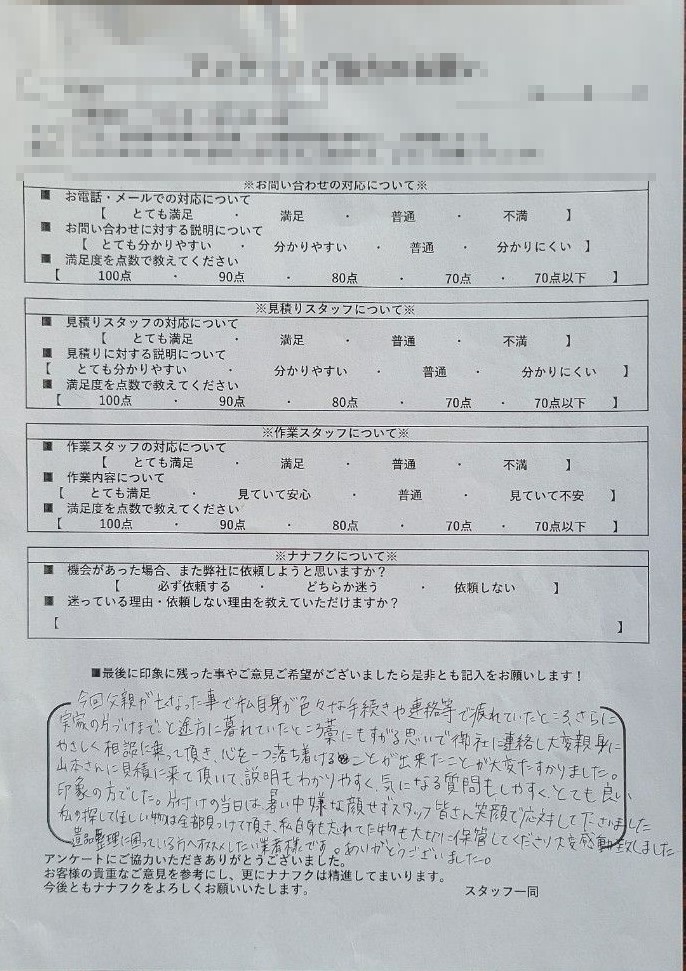 ※お問い合わせの対応について※
■ お電話・メールでの対応について
【 とても満足 ・ 満足 ・ 普通 ・ 不満 】
■ お問い合わせに対する説明について
【 とても分かりやすい ・ 分かりやすい ・ 普通 ・ 分かりにくい 】
■ 満足度を点数で教えてください
【 100点 ・ 90点 ・ 80点 ・ 70点 ・ 70点以下 】
※見積りスタッフについて※
■ 見積りスタッフの対応について
【 とても満足 ・ 満足 ・ 普通 ・ 不満 】
■ 見積りに対する説明について
【 とても分かりやすい ・ 分かりやすい ・ 普通 ・ 分かりにくい 】
■ 満足度を点数で教えてください
【 100点 ・ 90点 ・ 80点 ・ 70点 ・ 70点以下 】
※作業スタッフについて※
■ 作業スタッフの対応について
【 とても満足 ・ 満足 ・ 普通 ・ 不満 】
■ 作業内容について
【 とても満足 ・ 見ていて安心 ・ 普通 ・ 見ていて不安 】
■ 満足度を点数で教えてください
【 100点 ・ 90点 ・ 80点 ・ 70点 ・ 70点以下 】
※ナナフクについて※
■ 機会があった場合、また弊社に依頼しようと思いますか？
【 必ず依頼する ・ どちらか迷う ・ 依頼しない 】
■ 迷っている理由・依頼しない理由を教えていただけますか？
【 】
■最後に印象に残った事やご意見ご希望がございましたら是非とも記入をお願いします！
今回父親が亡くなった事で私自身が色々な手続きや連絡等で疲れていたところ、さらに
実家の片づけまで、と途方に暮れていたところ藁にもすがる思いで御社に連絡し大変親身に
やさしく相談に乗って頂き、心を一つ落ち着けることが出来たことが大変たすかりました。
山本さんに見積に来て頂いて、説明もわかりやすく、気になる質問もしやすく、とても良い
印象の方でした。片付けの当日は、暑い中嫌な顔せずスタッフ皆さん笑顔で応対して下さいました
私の探してほしい物は全部見つけて頂き、私自身も忘れてた物も大切に保管してくださり大変感動致しました
遺品整理に困っている方へオススメしたい業者様です。ありがとうございました。
アンケートにご協力いただきありがとうございました。
お客様の貴重なご意見を参考にし、更にナナフクは精進してまいります。
今後ともナナフクをよろしくお願いいたします。 スタッフ一同